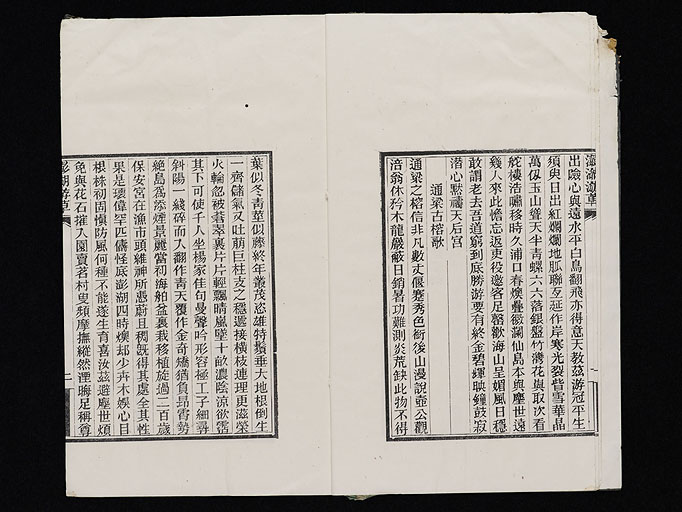 澎湖游草
出險心與遠水平白鳥翻飛亦得意天教茲游冠平生
須臾日出紅爛爛地脈聯亙延作岸寒光裂眥雪華晶
萬仭玉山聳天半青螺六六落銀盤竹灣花嶼取次看
舵樓浩嘯移時久浦口春燠疊縠瀾仙島本與塵世遠
幾人來此憺忘返吏役邀客足豁歡海山呈媚風日穩
敢謂老去吾道窮到底勝游要有終金碧輝映鐘鼓寂
潛心默禱天后宫
通梁古榕歌
通梁之榕信非凡數丈偃蹇秀色銜後山漫說壺公觀
涪翁休矜木龍巖蔽日銷暑功難測炎荒缺此物不得
葉似冬青莖似藤終年叢茂恣雄特鬚垂大地根倒生
一齊儲氣又吐萌巨柱支之穩邐接橫枝連理更滋榮
火輪忽被蒼翠裏片片輕飄晴嵐墜十畝濃陰涼欲霑
其下可使千人坐楊家佳句曼聲吟形容極工子細尋
斜陽一綫碎而入翻作青天覆作金奇矯猶負昂霄勢
絕島爲添煙景麗當初海舶盆裏栽移植旋過二百歲
保安宮在漁市頭維神所憑蔚且稠旣得其處全其性
果是瓌偉罕匹儔怪底彭湖四時燠却少卉木娛心目
根株初固愼防風何種不能遂生育喜汝茲避塵世煩
免與花石摧入園賣茗村叟頻摩撫縱然湮晦足稱尊
澎湖游草
二